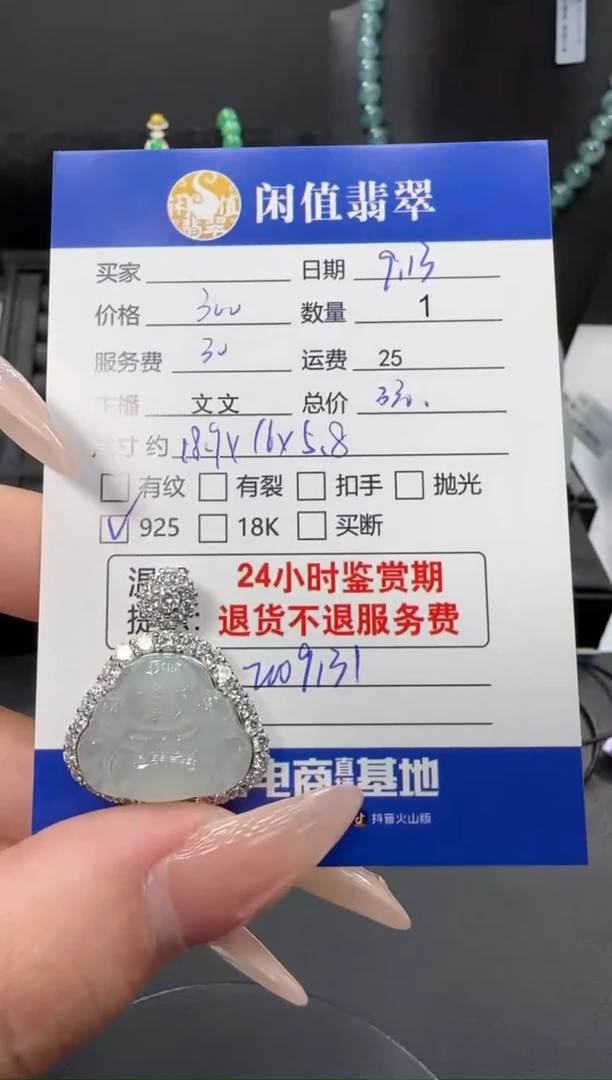 闲值翡翠
闲值翡翠
买家 日期 9.13
价格 300 数量 1
服务费 30 运费 25
主播 文文 总价 330.
尺寸 约 18.9x16x5.8
有纹 有裂 扣手 抛光
925 18K 买断
24小时鉴赏期
提 : 退货不退服务费
9131
电商直播基地
抖音火山版